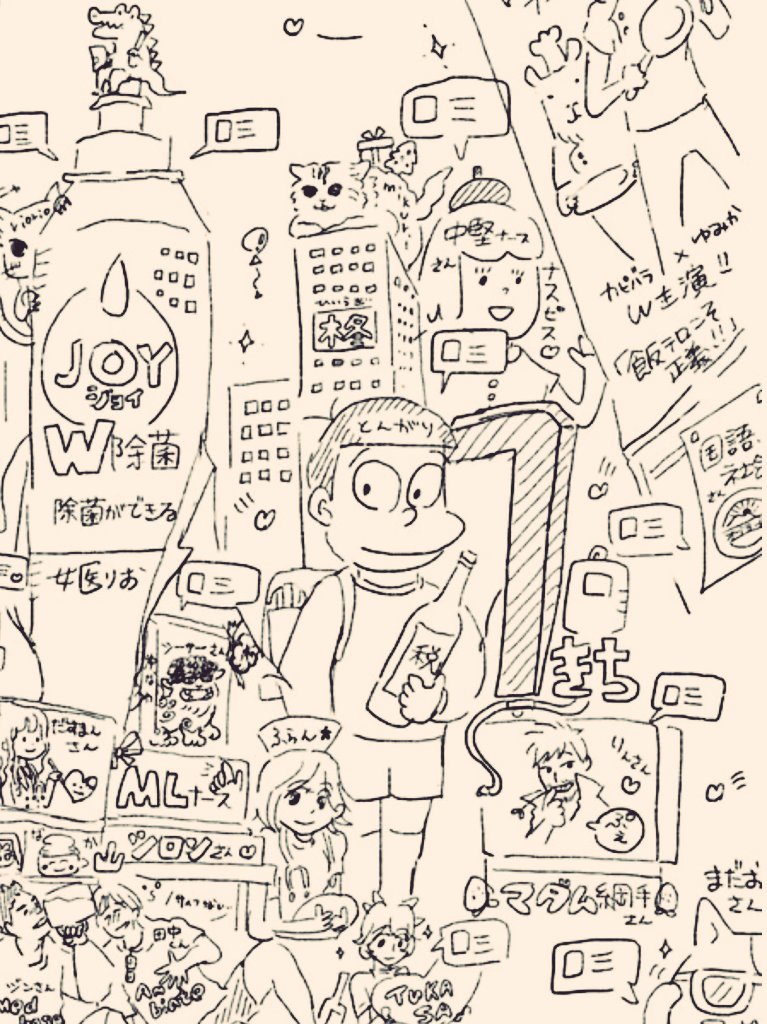 mikuri
中堅ナース
さん
ナスビス♡
ゆみか
×
カピバラ
W主演!!
「飯テロンそ
正義!!」
柊
JOY
ジョイ
W除菌
除菌ができる
とんがり
国語
社会
さん
女医りお
税
きち
シーサーさん
だずまん
さん
ふらん★
りんさん
ぷぇ
MLナース
シロンさん♡
マダム綱手
さん
まだお
さん
田中
さん
ジンさん
TUKA
SA